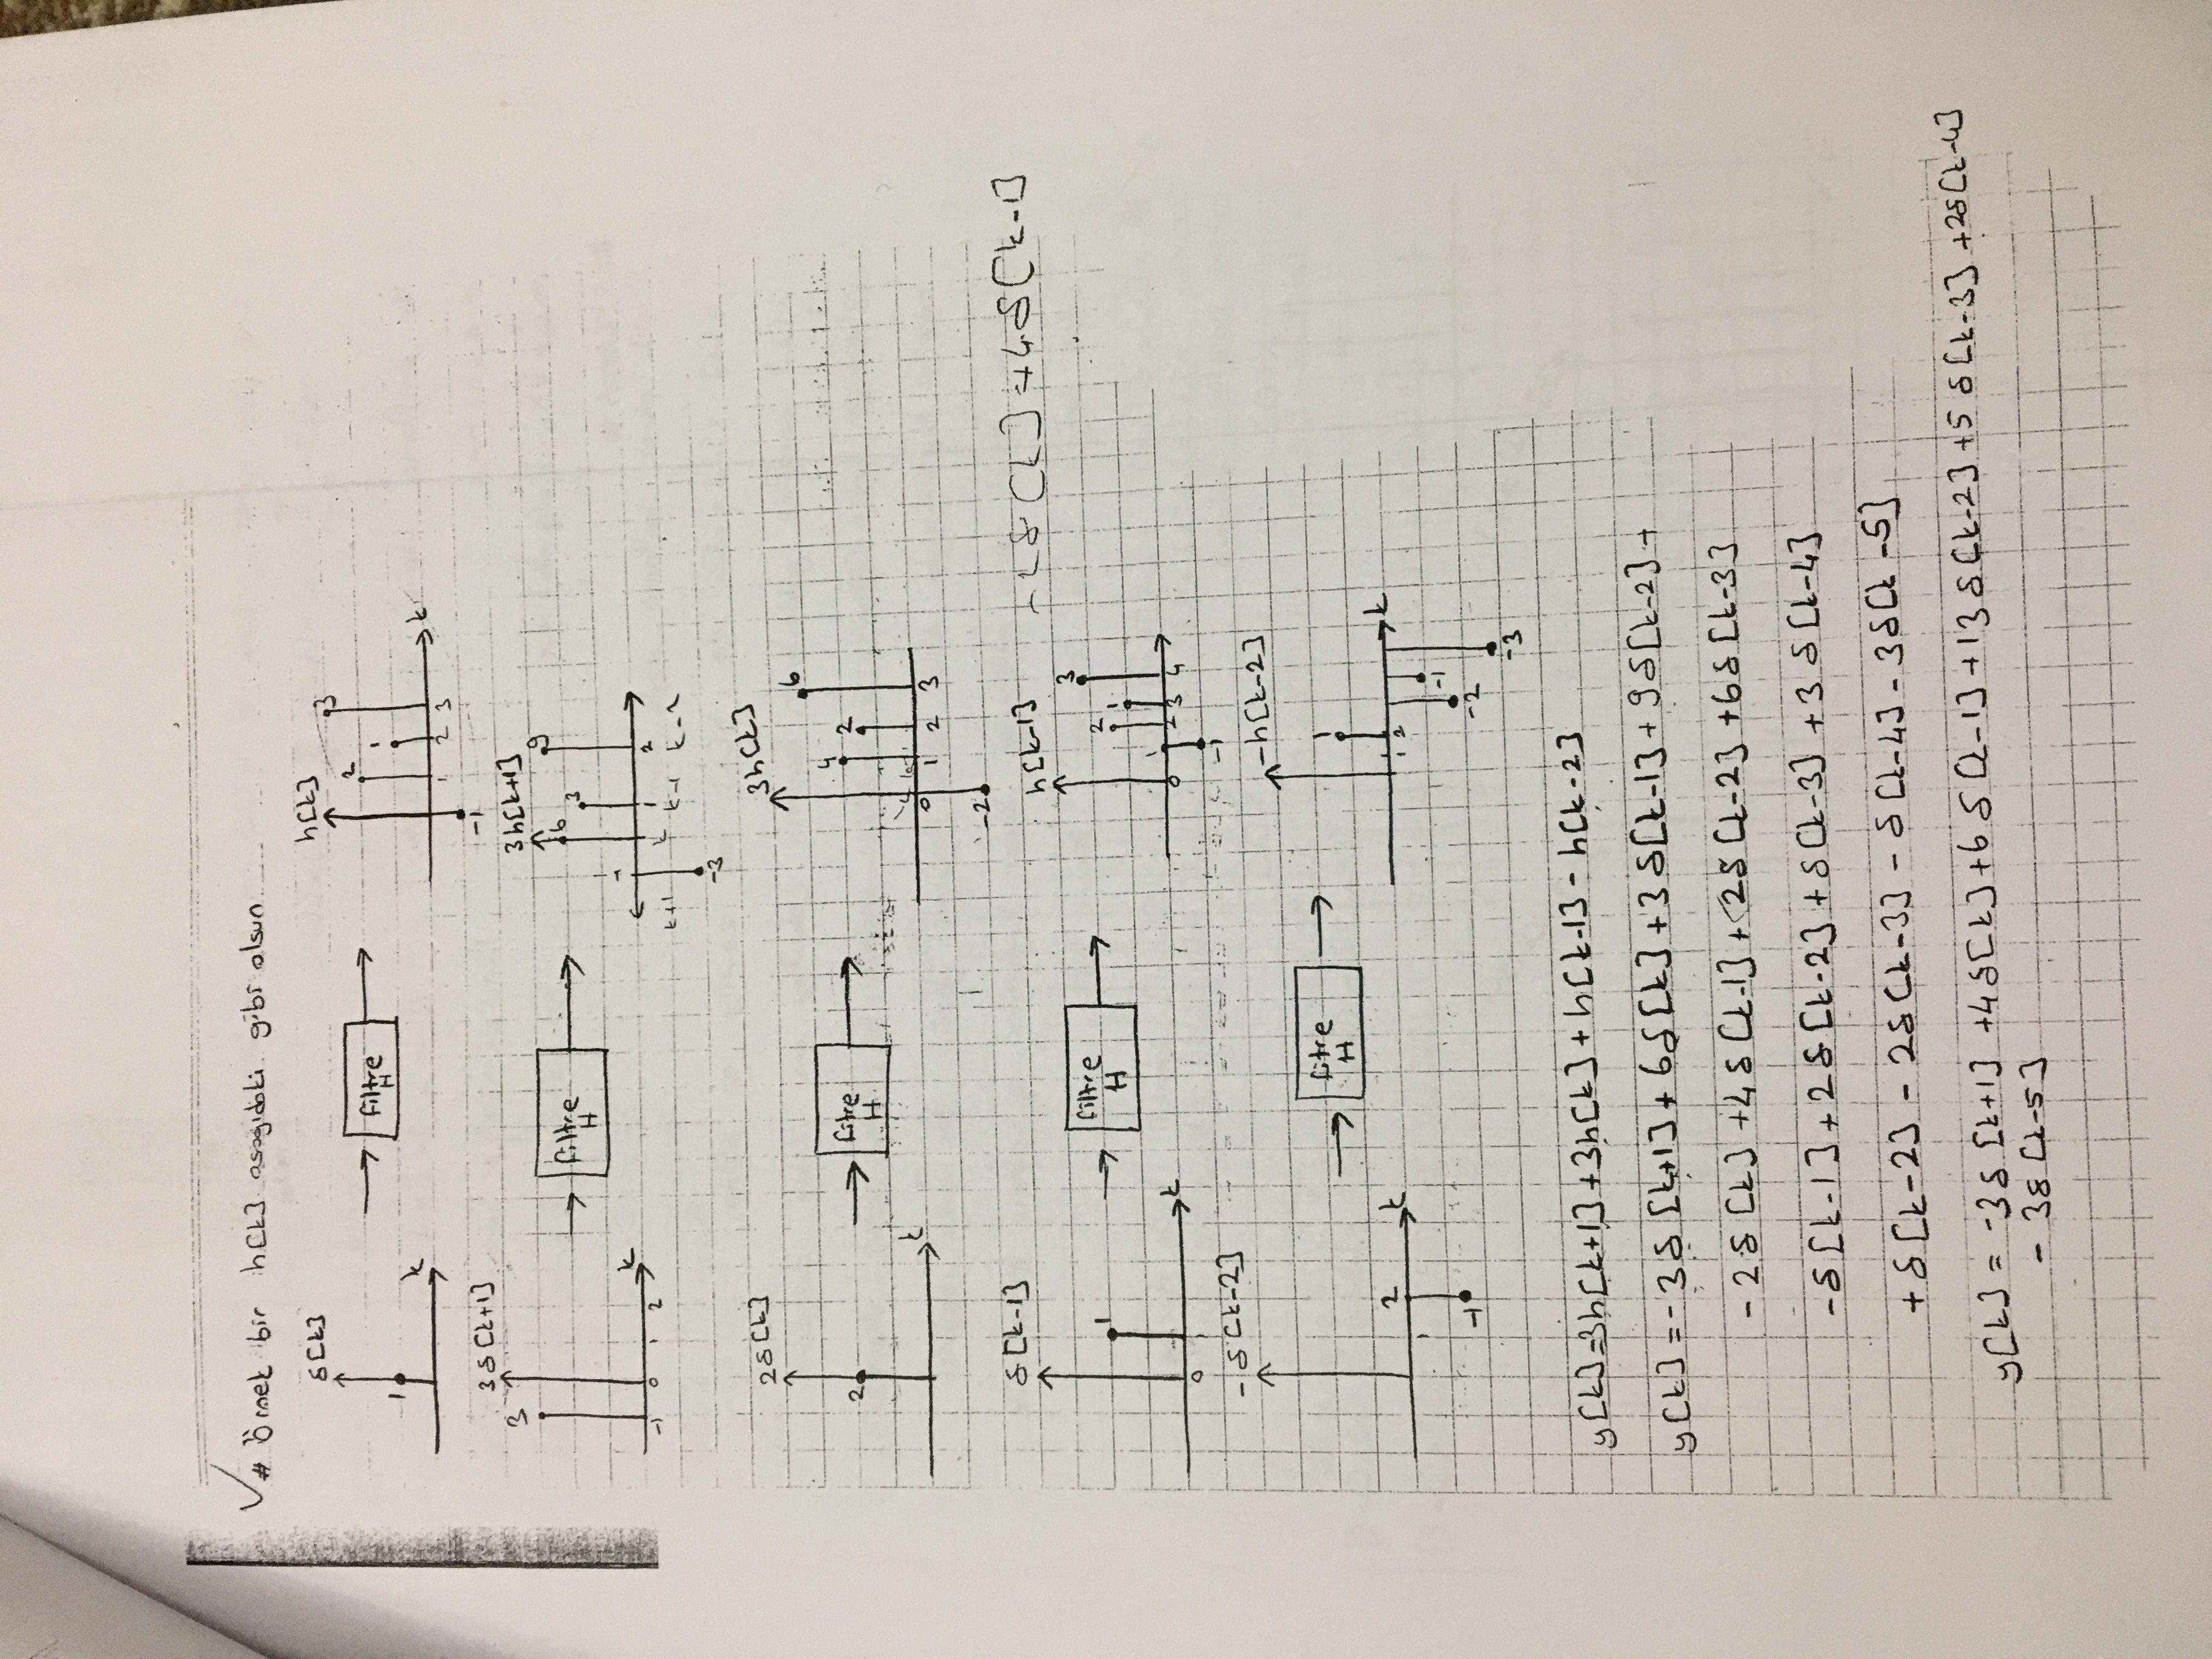 # Örnek bir h[k] aşağıdaki gibi olsun
δ[k]
1
k
Filtre
H
h[k]
2
1
3
1 2 3
k
-1
3δ[k+1]
3
k
-1 0 1 2
Filtre
H
3h[k+1]
6
3
9
1
2
k+1 k k-1 k-2
-3
2δ[k]
2
k
Fitre
H
3h[k]
4
2
6
0 1 2 3
-2
δ[k-1]
1
k
0 1
Filtre
H
h[k-1]
2
1
3
0 1 2 3 4
-1
-2δ[k]+4δ[k-1]
-δ[k-2]
2
k
1
-1
Fitre
H
-h[k-2]
1
k
1 2
-1
-2
-3
y[k]=3h[k+1]+3h[k]+h[k-1]-h[k-2]
y[k]=-3δ[k+1]+6δ[k]+3δ[k-1]+9δ[k-2]+
-2δ[k]+4δ[k-1]+2δ[k-2]+6δ[k-3]
-δ[k-1]+2δ[k-2]+δ[k-3]+3δ[k-4]
+δ[k-2]-2δ[k-3]-δ[k-4]-3δ[k-5]
y[k]=-3δ[k+1]+4δ[k]+6δ[k-1]+13δ[k-2]+5δ[k-3]+2δ[k-4]
-3δ[k-5]